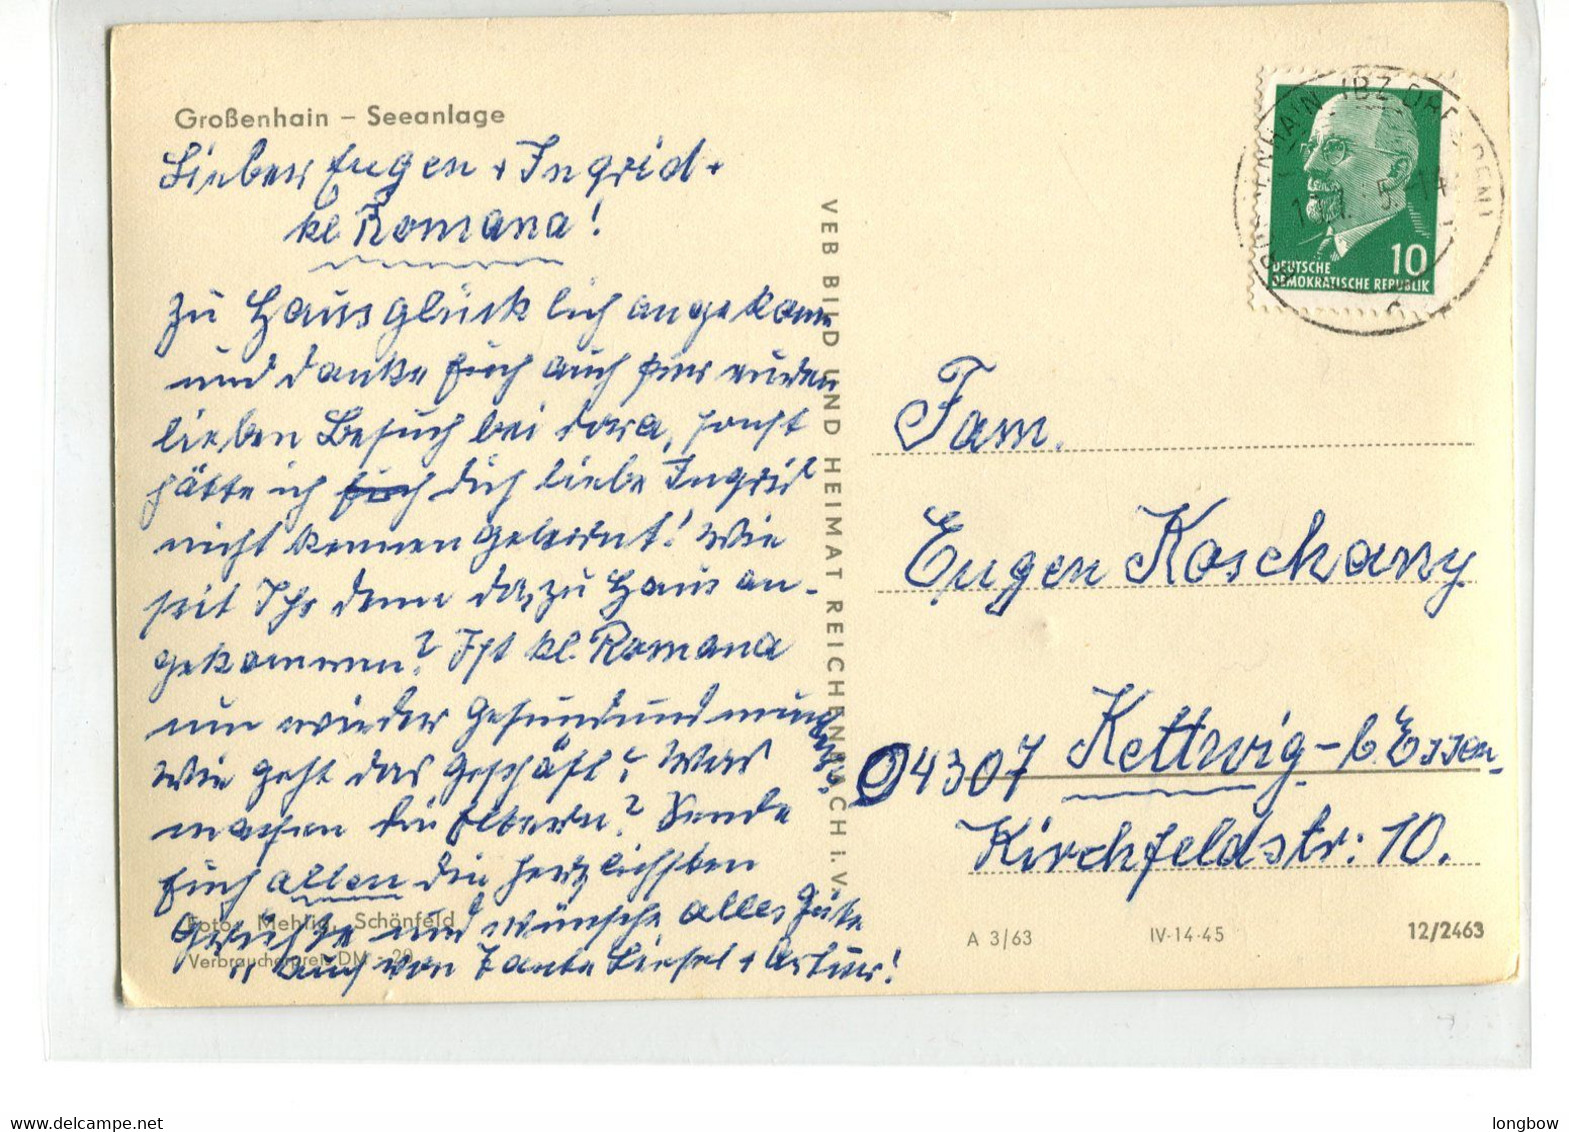 Großenhain – Seeanlage
Lieber Eugen + Ingrid +
kl. Romana!
Zu Haus glücklich angekomm
und danke Euch auch für euren
lieben Besuch bei Dora, sonst
hätte ich Euch Dich liebe Ingrid
nicht kennen gelernt! Wie
seit Ihr denn dazu Haus an-
gekommen? Ist kl. Romana
nun wieder Gesund und munter?
Wie geht das Geschäft? Was
machen die Eltern? Sende
Euch allen die herzlichsten
Grüße und wünsche alles Gute
" auch von Tante Liesel + Artur!
Foto: Mehlig, Schönfeld
Verbraucherpreis DM -,20
VEB BILD UND HEIMAT REICHENBACH i. V.
DEUTSCHE
DEMOKRATISCHE REPUBLIK
10
Fam.
Eugen Koschany
04307 Kettwig - b. Essen
Kirchfeldstr: 10.
A 3/63
IV-14-45
12/2463
longbow